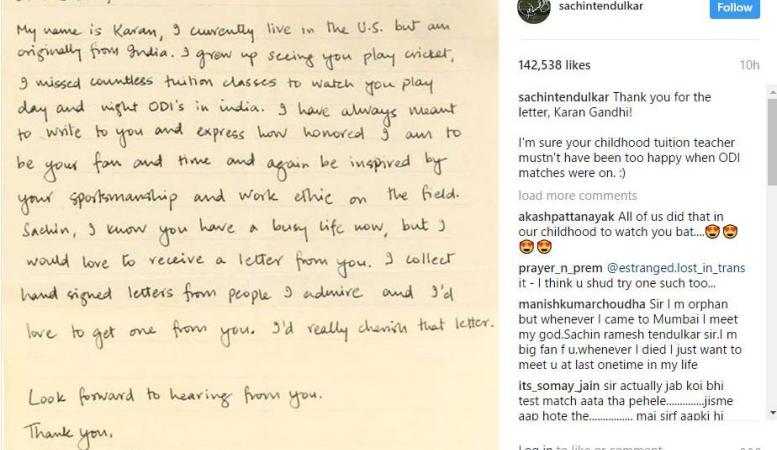 My name is Karan, I currently live in the U.S. but am
originally from India. I grew up seeing you play cricket,
I missed countless tuition classes to watch you play
day and night ODI's in india. I have always meant
to write to you and express how honored I am to
be your fan and time and again be inspired by
your sportsmanship and work ethic on the field.
Sachin, I know you have a busy life now, but I
would love to receive a letter from you. I collect
hand signed letters from people I admire and I'd
love to get one from you. I'd really cherish that letter.
Look forward to hearing from you.
Thank you,
sachintendulkar
Follow
142,538 likes
10h
sachintendulkar Thank you for the
letter, Karan Gandhi!
I'm sure your childhood tuition teacher
mustn't have been too happy when ODI
matches were on. :)
load more comments
akashpattanayak All of us did that in
our childhood to watch you bat....😍😍
😍😍
prayer_n_prem @estranged.lost_in_trans
it - I think u shud try one such too...
manishkumarchoudha Sir I m orphan
but whenever I came to Mumbai I meet
my god.Sachin ramesh tendulkar sir.I m
big fan f u.whenever I died I just want to
meet u at last onetime in my life
its_somay_jain sir actually jab koi bhi
test match aata tha pehele..............jisme
aap hote the................ mai sirf aapki hi
Log in to like or comment.